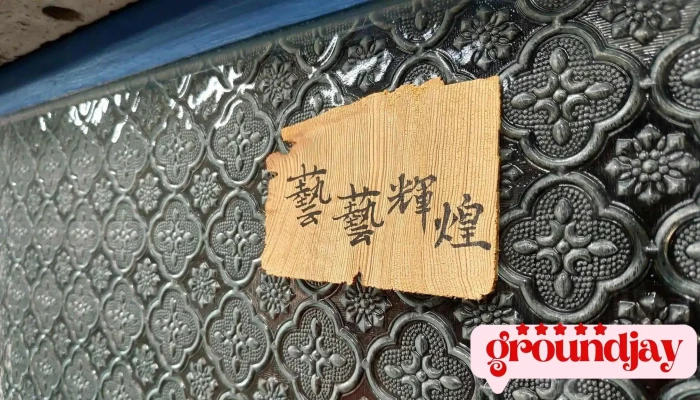 藝藝輝煌
groundjay